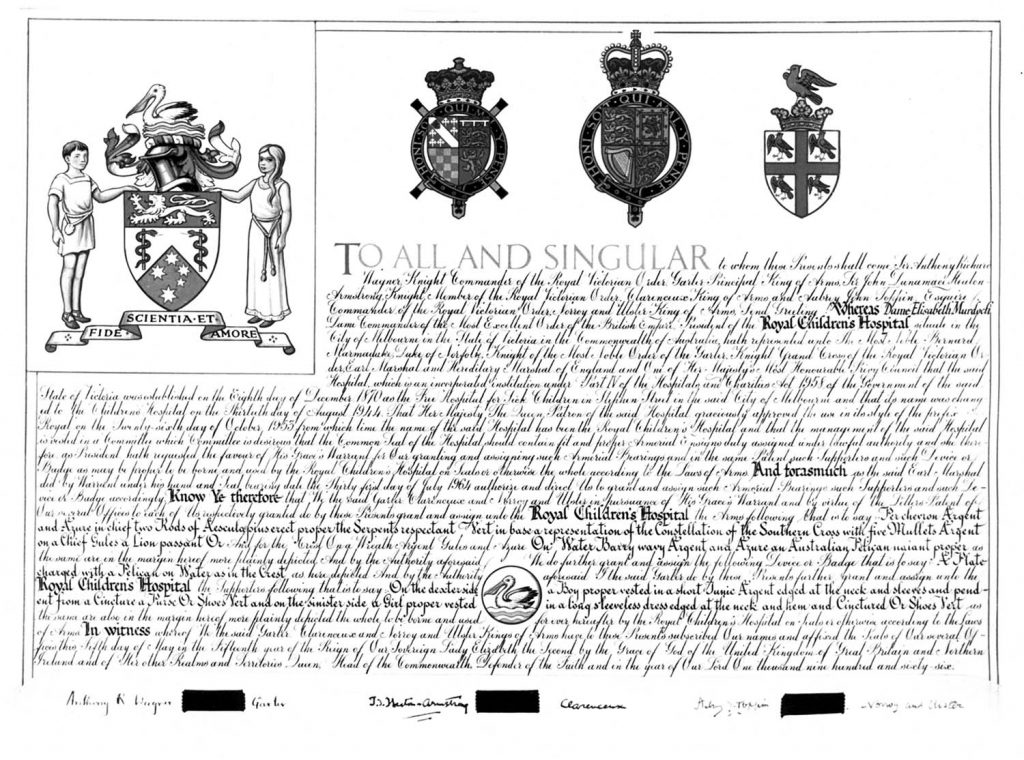 HONI SOIT QUI MAL Y PENSE
HONI SOIT QUI MAL Y PENSE
SCIENTIA·ET·
FIDE AMORE
TO ALL AND SINGULAR to whom these Presents shall come Sir Anthony Richard
Wagner Knight Commander of the Royal Victorian Order Garter Principal King of Arms, Sir John Dunamace Heaton-
Armstrong, Knight, Member of the Royal Victorian Order, Clarenceux King of Arms and Aubrey John Toppin Esquire
Commander of the Royal Victorian Order, Norroy and Ulster King of Arms, Send Greeting Whereas Dame Elisabeth Murdoch
Dame Commander of the Most Excellent Order of the British Empire, President of the Royal Children's Hospital situate in the
City of Melbourne in the State of Victoria in the Commonwealth of Australia, hath represented unto The Most Noble Bernard
Marmaduke, Duke of Norfolk, Knight of the Most Noble Order of the Garter, Knight Grand Cross of the Royal Victorian Or-
der, Earl Marshal and Hereditary Marshal of England and One of Her Majesty's Most Honourable Privy Council that the said
Hospital, which is an incorporated institution under Part IV of the Hospitals and Charities Act 1958 of the Government of the said
State of Victoria was established on the Eighth day of December 1870 as the Free Hospital for Sick Children in Stephen Street in the said City of Melbourne and that its name was chang
ed to the Childrens Hospital on the Thirtieth day of August 1944 That Her Majesty The Queen Patron of the said Hospital graciously approved the use in its style of the prefix
Royal on the Twenty-sixth day of October 1953 from which time the name of the said Hospital has been the Royal Children's Hospital and that the management of the said Hospital
is vested in a Committee which Committee is desirous that the Common Seal of the Hospital should contain fit and proper Armorial Ensigns duly assigned under lawful authority and she there-
fore as President hath requested the favour of His Grace's Warrant for Our granting and assigning such Armorial Bearings and in the same Patent such Supporters and such Device or
Badge as may be proper to be borne and used by the Royal Children's Hospital on Seals or otherwise the whole according to the Laws of Arms And forasmuch as the said Earl Marshal
did by Warrant under his hand and Seal bearing date the Thirty first day of July 1964 authorize and direct Us to grant and assign such Armorial Bearings such Supporters and such De-
vice or Badge accordingly Know Ye therefore that We the said Garter Clarenceux and Norroy and Ulster in pursuance of His Grace's Warrant and by virtue of the Letters Patent of
Our several Offices to each of Us respectively granted do by these Presents grant and assign unto the Royal Children's Hospital the Arms following that is to say Per chevron Argent
and Azure in chief two Rods of Aesculapius erect proper the Serpents respectant Vert in base a representation of the Constellation of the Southern Cross with five Mullets Argent
on a Chief Gules a Lion passant Or And for the Crest On a Wreath Argent Gules and Azure On Water Barry wavy Argent and Azure an Australian Pelican naiant proper as
the same are in the margin hereof more plainly depicted And by the Authority aforesaid We do further grant and assign the following Device or Badge that is to say A Plate
charged with a Pelican on Water as in the Crest as here depicted And by the Authority aforesaid I the said Garter do by these Presents further grant and assign unto the
Royal Children's Hospital the Supporters following that is to say On the dexter side a Boy proper vested in a short Tunic Argent edged at the neck and sleeves and pend-
ent from a Cincture a Purse Or Shoes Vert and on the sinister side a Girl proper vested in a long sleeveless dress edged at the neck and hem and Cinctured Or Shoes Vert as
the same are also in the margin hereof more plainly depicted the whole to be borne and used for ever hereafter by the Royal Children's Hospital on Seals or otherwise according to the Laws
of Arms In witness whereof We the said Garter, Clarenceux and Norroy and Ulster Kings of Arms have to these Presents subscribed Our names and affixed the Seals of Our several Of-
fices this Fifth day of May in the Fifteenth year of the Reign of Our Sovereign Lady Elizabeth the Second by the Grace of God of the United Kingdom of Great Britain and Northern
Ireland and of Her other Realms and Territories Queen, Head of the Commonwealth, Defender of the Faith and in the year of Our Lord One thousand nine hundred and sixty-six.
Anthony R Wagner Garter J.D. Heaton-Armstrong Clarenceux Aubrey J. Toppin Norroy and Ulster